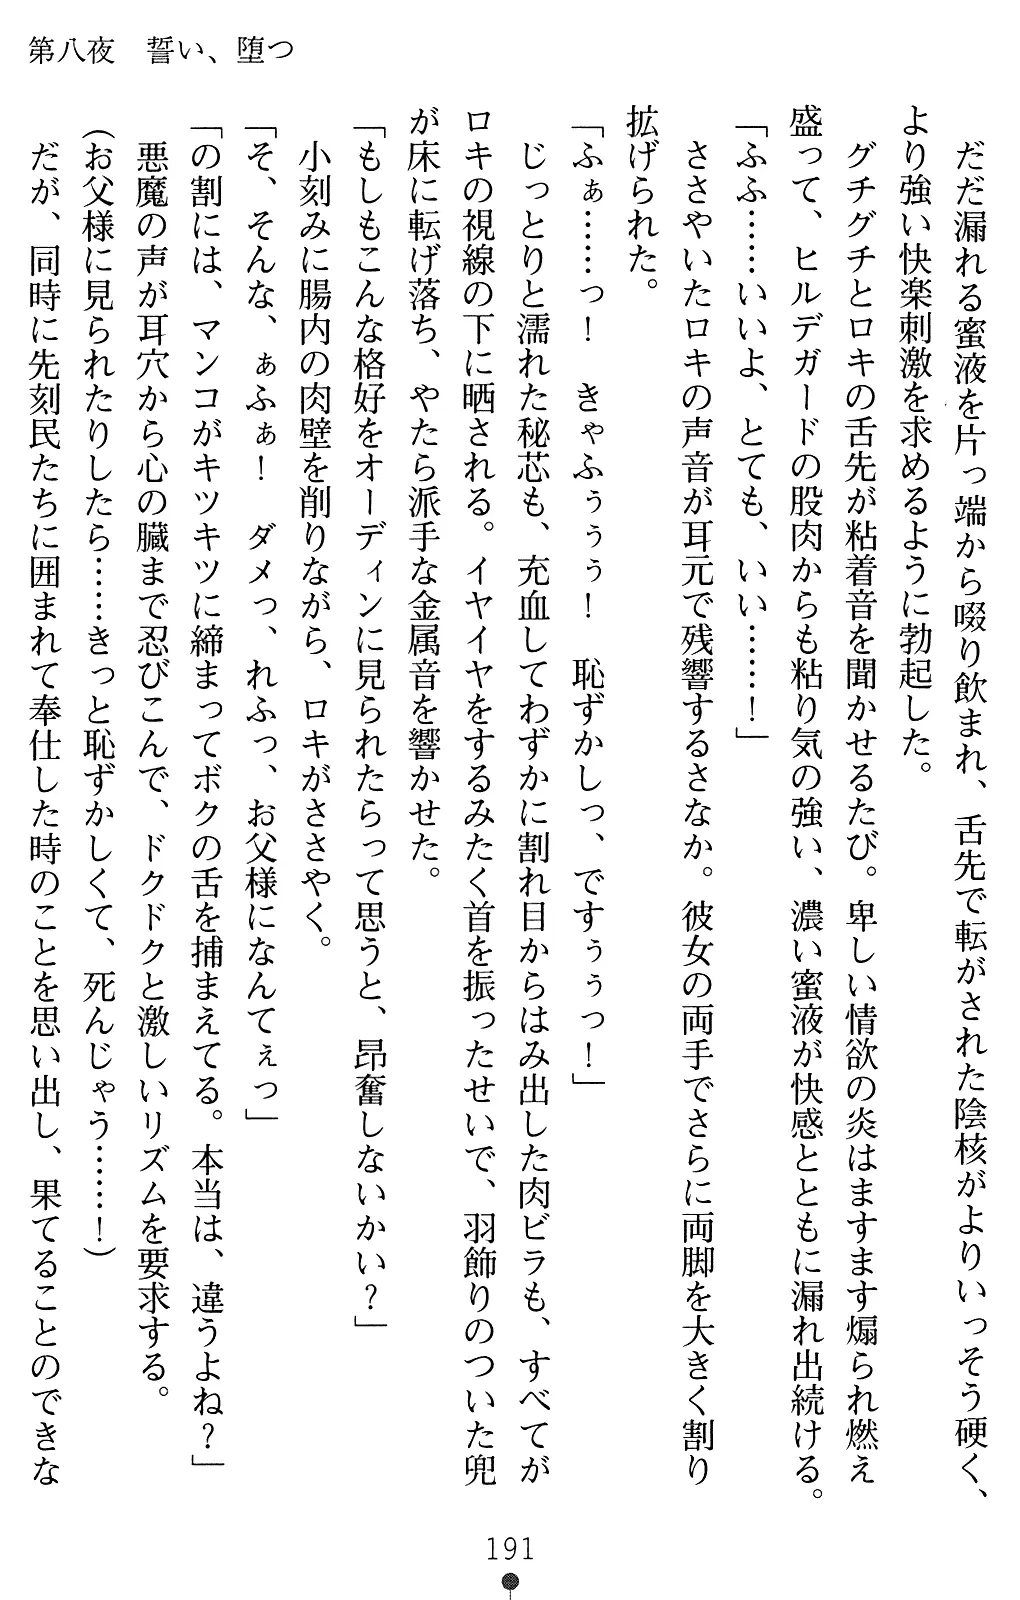 第八夜　誓い、堕つ
だだ漏れる蜜液を片っ端から啜り飲まれ、舌先で転がされた陰核がよりいっそう硬く、
より強い快楽刺激を求めるように勃起した。
グチグチとロキの舌先が粘着音を聞かせるたび。卑しい情欲の炎はますます煽られ燃え
盛って、ヒルデガードの股肉からも粘り気の強い、濃い蜜液が快感とともに漏れ出続ける。
「ふふ……いいよ、とても、いい……！」
ささやいたロキの声音が耳元で残響するさなか。彼女の両手でさらに両脚を大きく割り
拡げられた。
「ふぁ……っ！　きゃふぅぅぅ！　恥ずかしっ、ですぅぅっ！」
じっとりと濡れた秘芯も、充血してわずかに割れ目からはみ出した肉ビラも、すべてが
ロキの視線の下に晒される。イヤイヤをするみたく首を振ったせいで、羽飾りのついた兜
が床に転げ落ち、やたら派手な金属音を響かせた。
「もしもこんな格好をオーディンに見られたらって思うと、昂奮しないかい？」
小刻みに腸内の肉壁を削りながら、ロキがささやく。
「そ、そんな、ぁふぁ！　ダメっ、れふっ、お父様になんてぇっ」
「の割には、マンコがキツキツに締まってボクの舌を捕まえてる。本当は、違うよね？」
悪魔の声が耳穴から心の臓まで忍びこんで、ドクドクと激しいリズムを要求する。
（お父様に見られたりしたら……きっと恥ずかしくて、死んじゃう……！）
だが、同時に先刻民たちに囲まれて奉仕した時のことを思い出し、果てることのできな
191